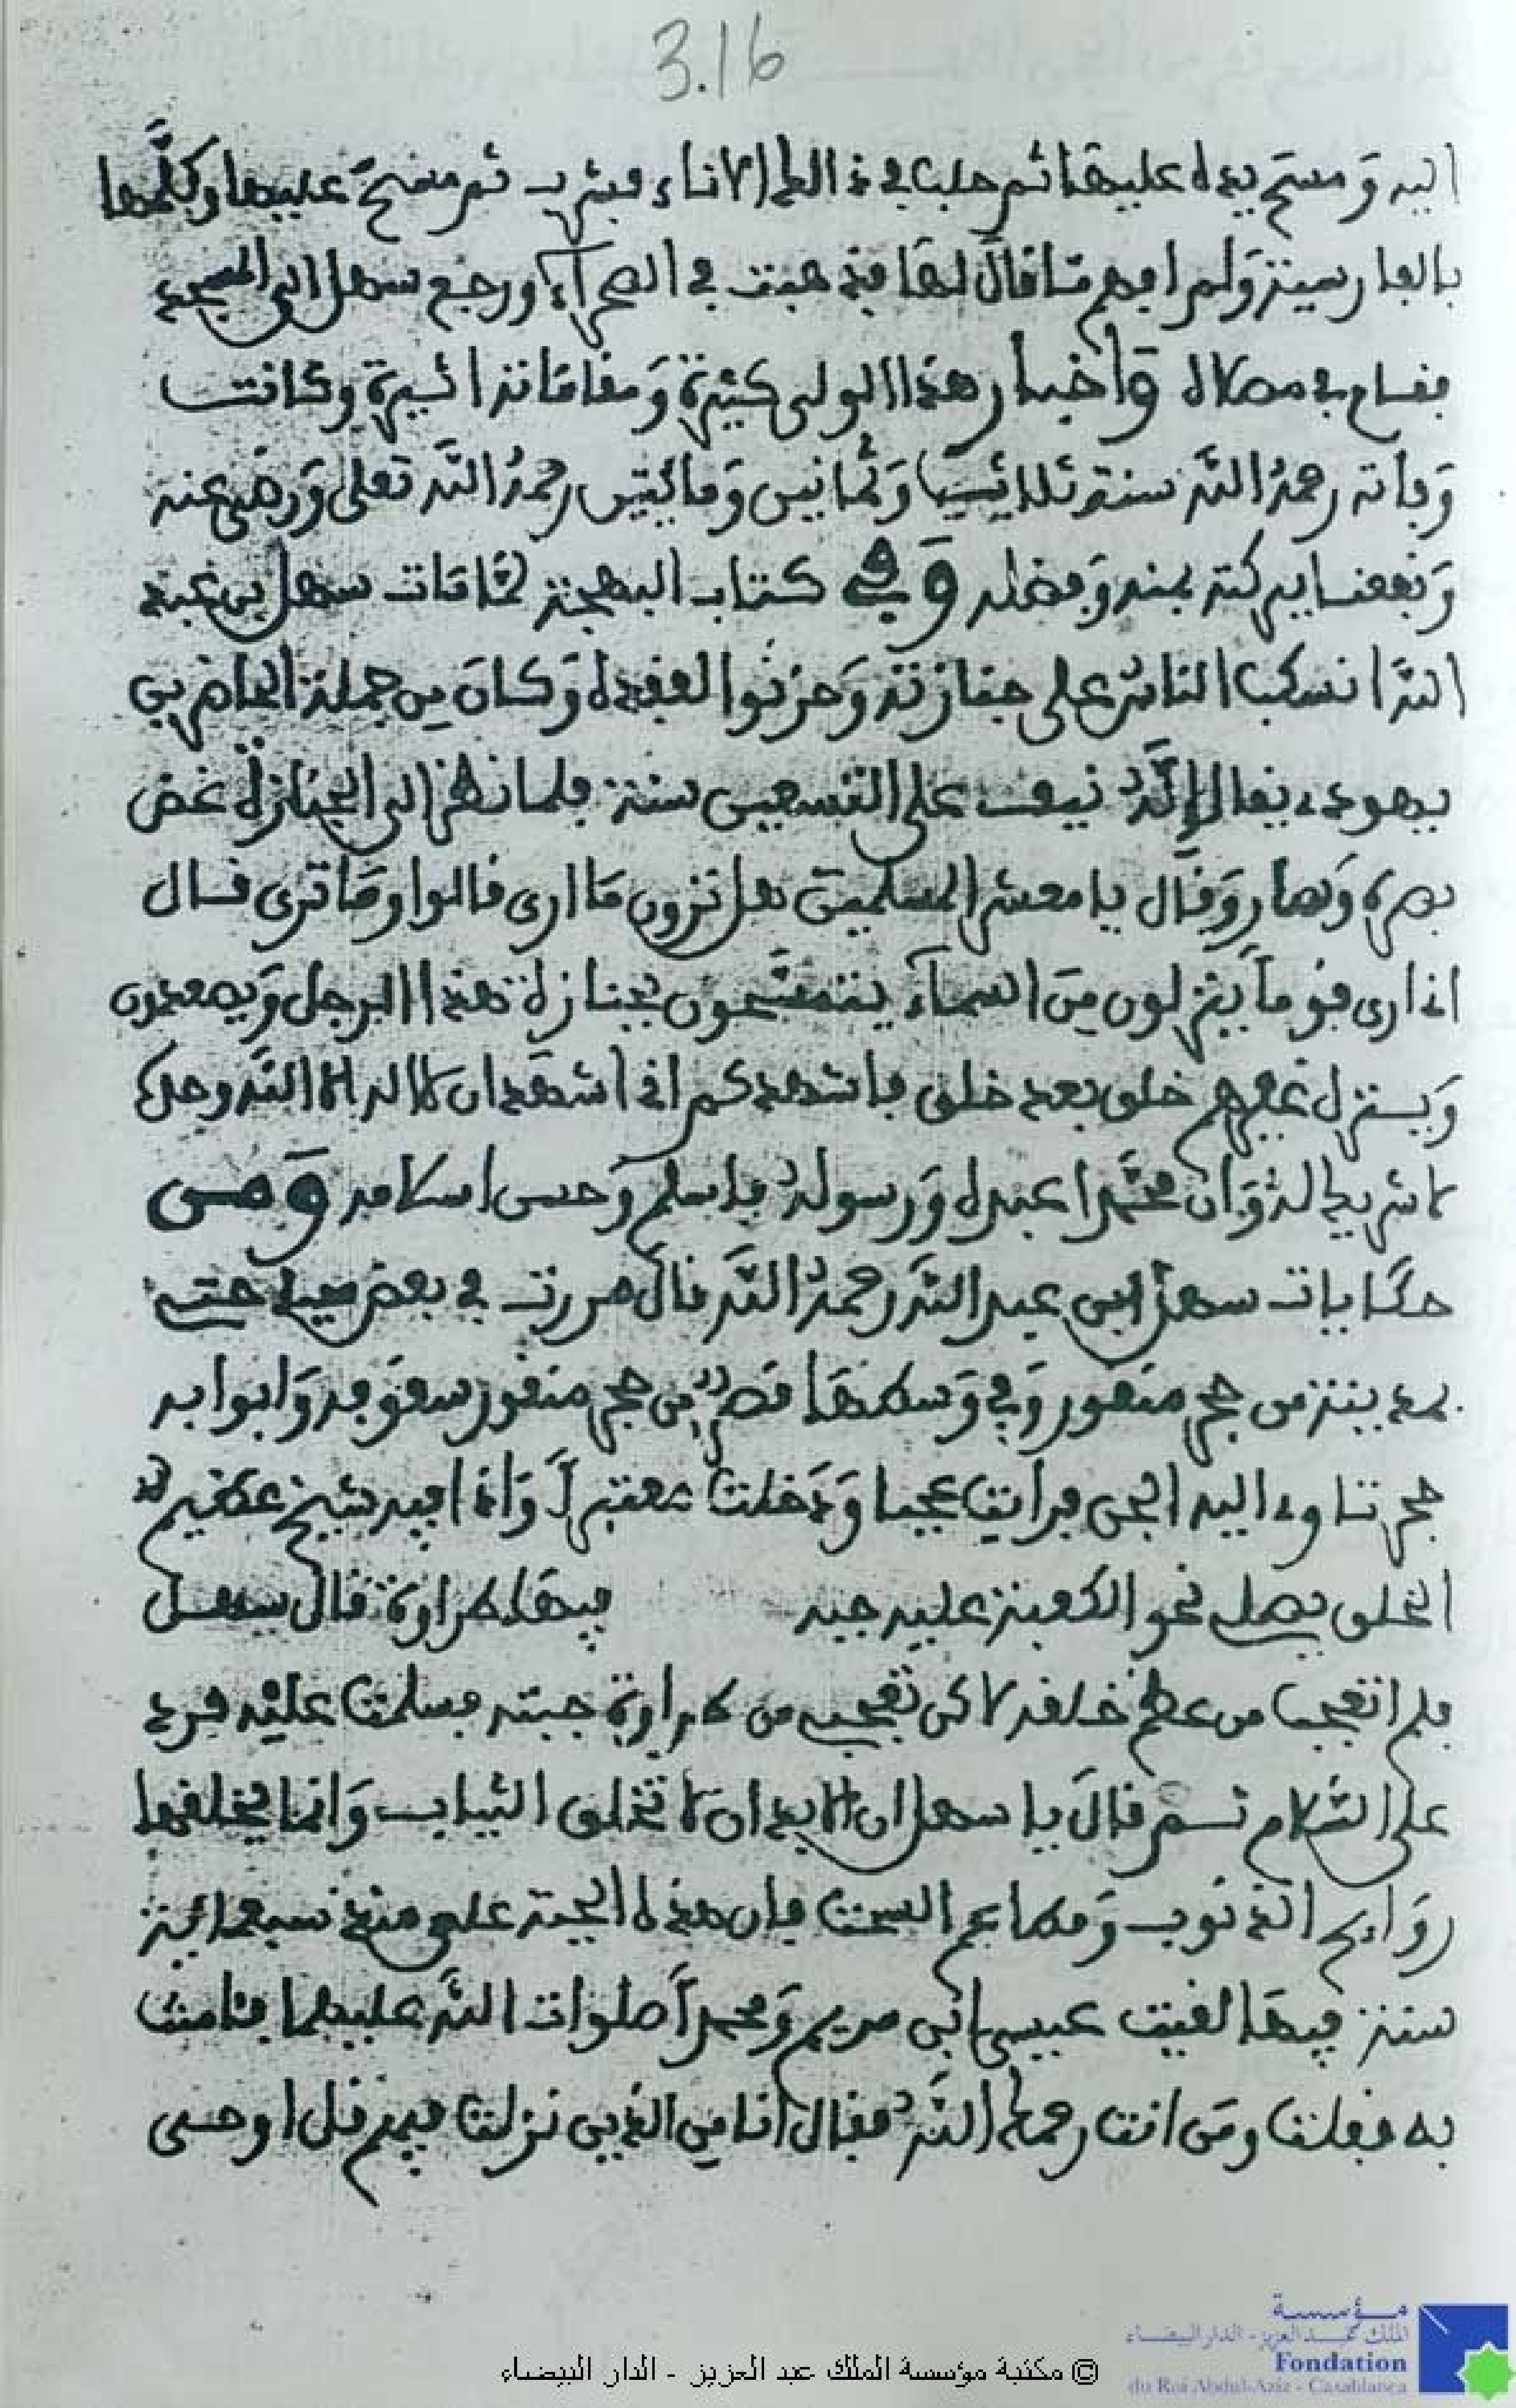 3.16
اليه وَمسحَ بيده عليها ثم حلب في ذالك الاناء فشرب ثم مسحَ عليها وكلَّمها
بالفارسية وَلم افهم مَا قالَ لهَا فذهبت في الصحرآء ورجع سهل الى المسجد
فقام في مصلاه وَاخبار هذا الولى كثيرة وَمقامَاته اثيرة وكانت
وَفاته رحمهُ اللَّه سنة ثلاث وَثمانين وَمائتين رحمهُ اللَّه تعلى وَرضى عنه
وَنفعنا ببركته بمنه وَفضله وَفي كتاب البهجة لما مَات سهل بن عبد
اللَّه انكب الناس على جنازته وَحزنوا لفقده وَكانَ من جملة الحاضرين
يهودي يقال إنَّهُ نيف على التسعين سنة فلما نظر الى الجنازة غض
بصره وَصار وَقال يا معشر المسلمين هل ترون مَا ارى قالوا ومَا ترى قال
انى ارى قومًا ينزلون منَ السمآء يتمسَّحون بجنازة هذا الرجل وَيصعدون
وَينزل غيرهم خلق بعد خلق فاشهدكم انى اشهد ان لا اله الا اللَّه وحده
لا شريك له وَان محمَّدا عبده وَرسوله فاسلم وَحسن اسلامه وَمن
حكايات سهل ابن عبد اللَّه رحمهُ اللَّه قال مررت في بعض سياحتى
بمدينة من حجر منقور وَفي وَسطهَا قصر من حجر منقور سقوفه وَابوابه
حجر تاوى اليه الجن فرأيت عجبا وَدَخلت معتبرًا وَاذا فيه شيخ عظيم
الخلق يصلى نحو الكعبة عليه جبه فيهَا طراوة قال سهل
فلم اتعجب من عظم خلقه لاكن تعجبت من طراوة جبته فسلمت عليْه فرد
على السَّلام ثم قالَ يا سهل ان الابدان لا تخلق الثياب وَانما يخلقها
رَوَايح الذنوب وَمطاعم السحت فان هذه الجبة علي منذ سبعمائة
سنة فيهَا لقيت عيسى ابن مريم وَمحمدًا صلوات اللَّه عليهما فئامنت
به فقلت ومَن انت رحمك اللَّه فقال انا من الذين نزلت فيهم قل اوحى
© مكتبة مؤسسة الملك عبد العزيز - الدار البيضاء
مؤسسة
الملك عبد العزيز - الدار البيضاء
Fondation
du Roi Abdul-Aziz - Casablanca